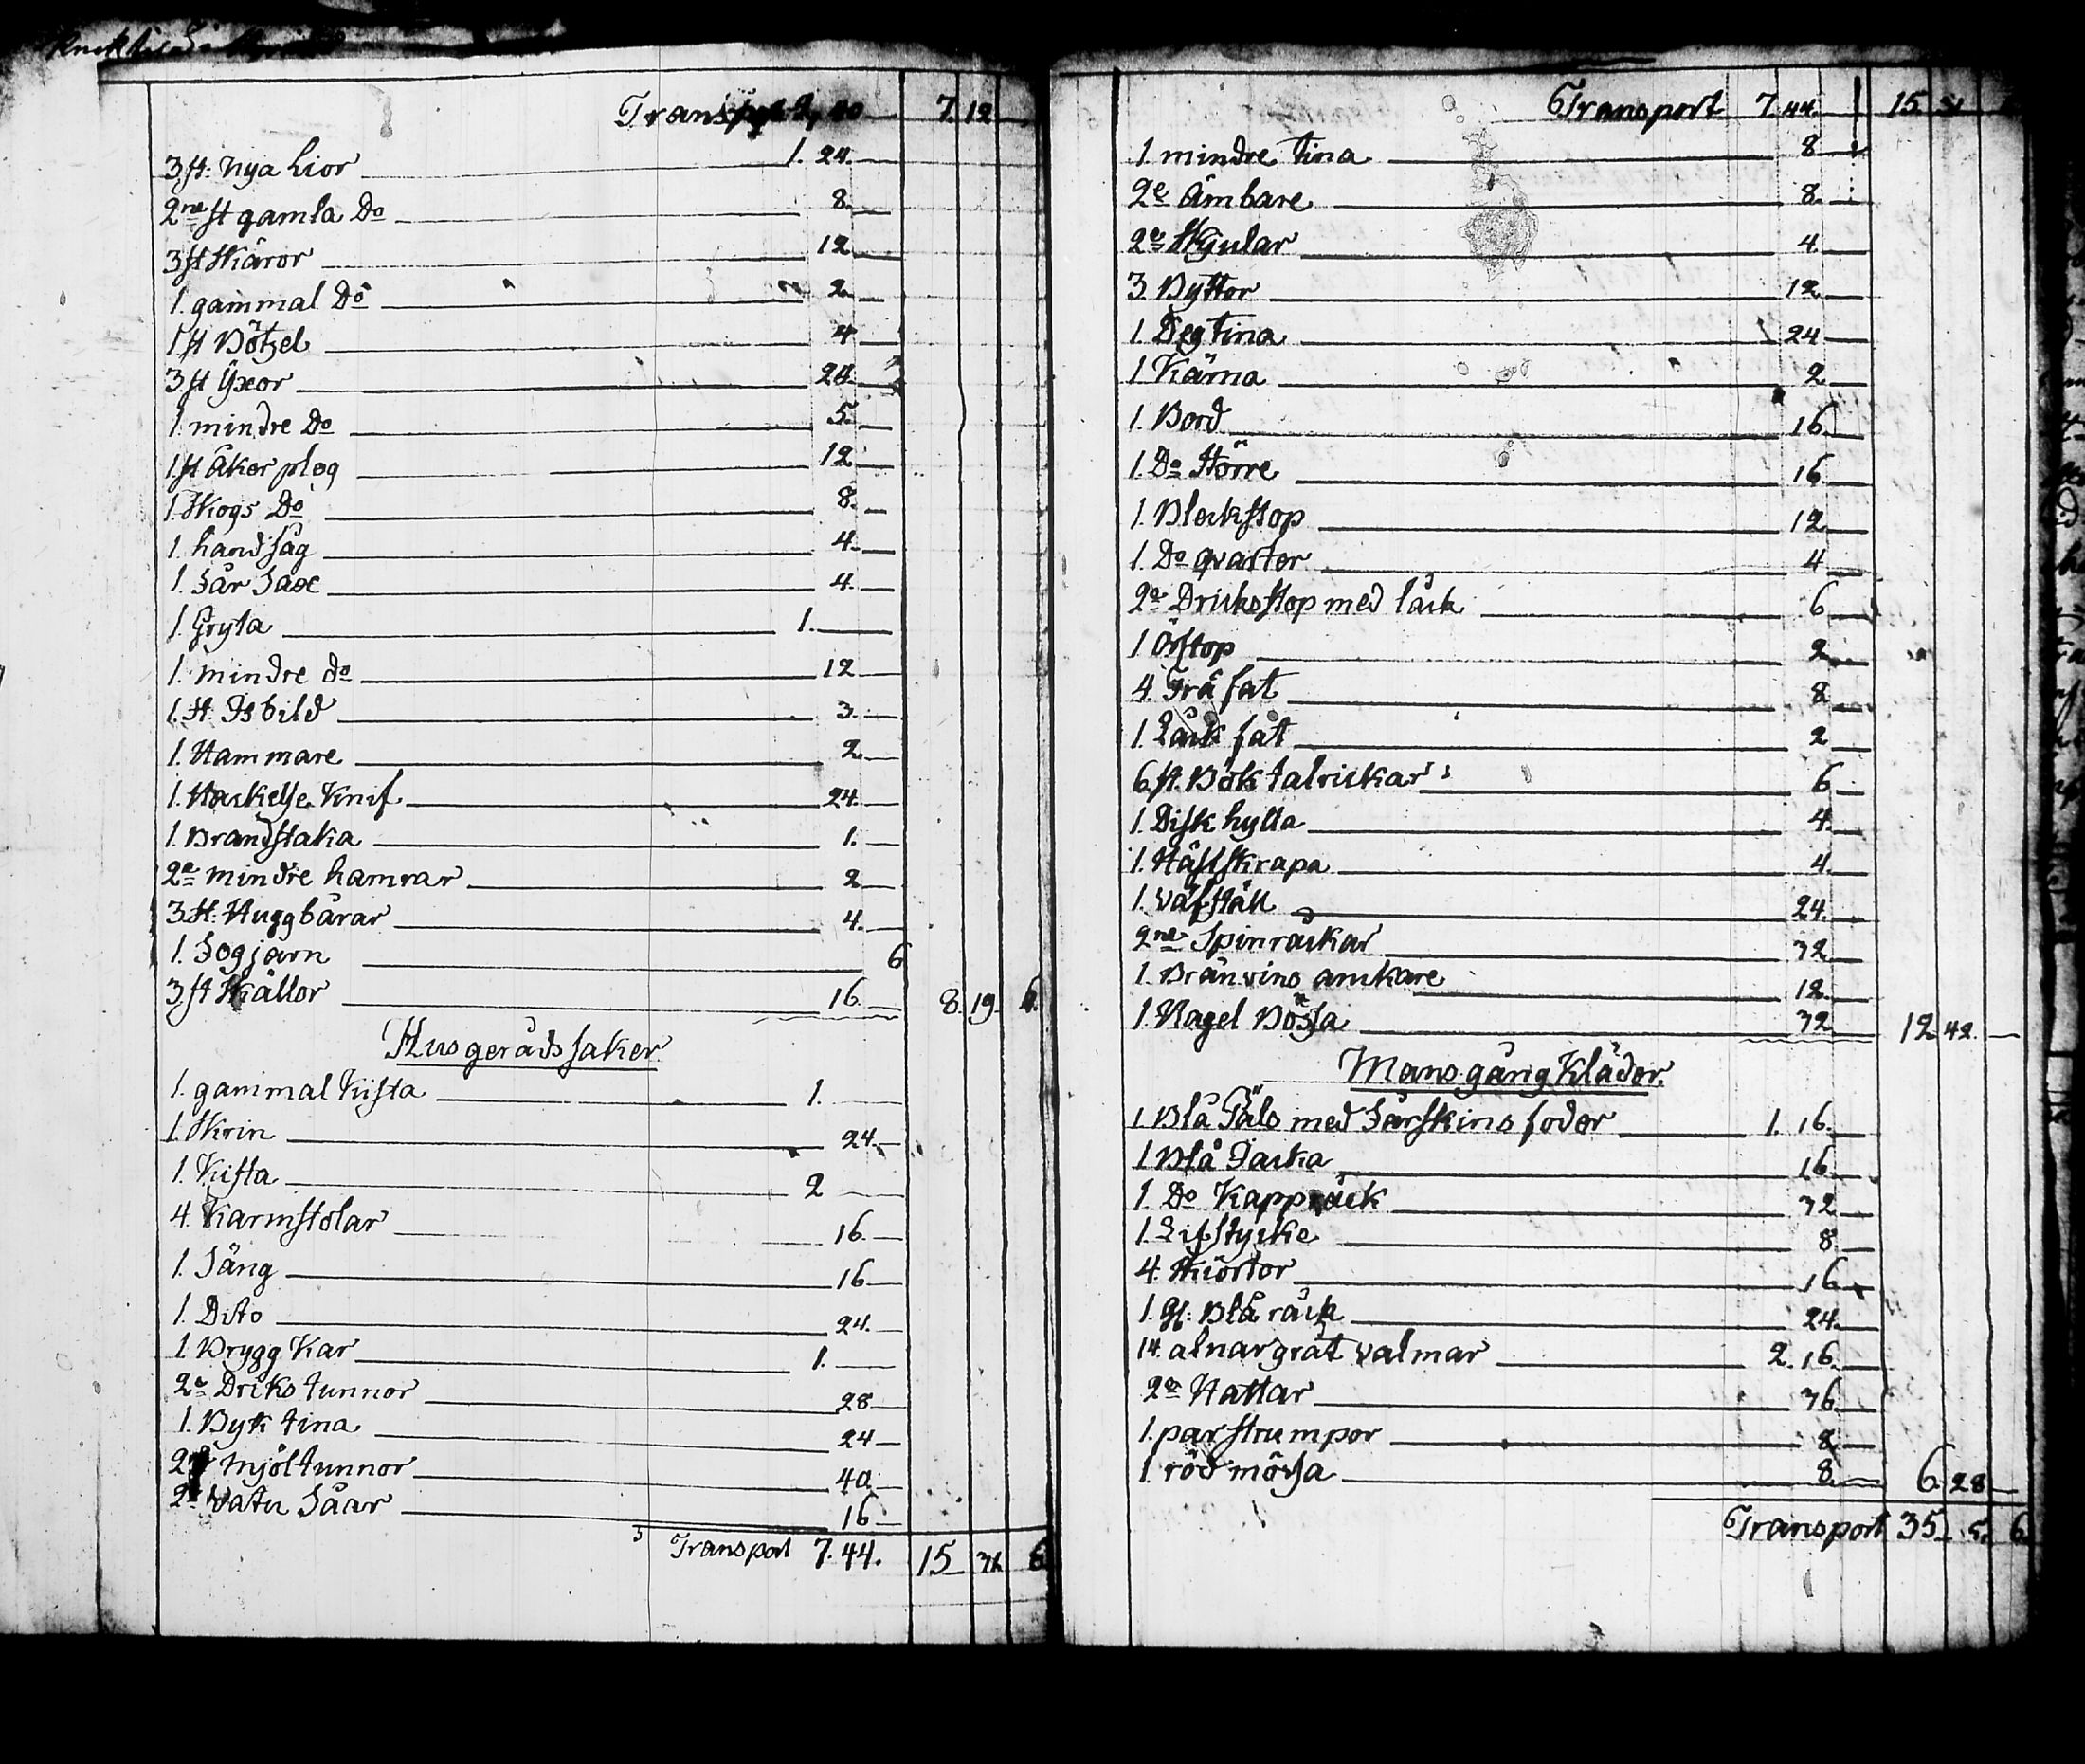 Transport 2, 40 7. 12
3 st: nya Lior 1. 24.
2ne st gamla Do 8.
3 st Skäror 12
1. gammal Do 2.
1 st Bötzel 4
3 st Yxor 24.
1. mindre Do 5.
1 st åker plog 12
1. Skogs Do 8.
1. handsåg 4.
1. Får Sax 4.
1. Gryta 1.
1. mindre do 12
1. st. Isbild 3.
1. Hammare 2
1. Hackelse Knif 24
1. Brandstaka 1.
2e mindre hamrar 2
3. st. Huggbårar 4.
1. Sogjarn 6
3. st Skällor 16 8. 19. 6.
Husgeråds saker
1. gammal Kista 1.
1. Skrin 24.
1. Kista 2
4. Karmstolar 16.
1. Säng 16
1. Dito 24.
1. Brygg Kar 1.
2e Driks tunnor 28
1. Byk tina 24
2e mjöltunnor 40.
2e Såar 16
Transport 7. 44. 15 31. 6
Transport 7. 44. 15. 31
1. mindre tina 8
2e ämbare 8.
2e Skjular 4
3. Byttor 12
1. Deg tina 24
1. Kärna 2
1. Bord 16.
1. Do Större 16
1. Bleckstop 12
1. Do qvarter 4
2e Dricksstop med låck 6
1 Ölstop 2
4. Träfat 8
1. Låck fat 2
6 st. Bök talrickar 6
1. Disk hylla 4.
1. Hästskrapa 4.
1. väfställ 24.
2ne Spinråckar 32
1. Bränvins anckare 12.
1. Hagel Bössa 32 12 42.
Mans gång Kläder.
1. Blå Päls med Fårskins foder 1. 16.
1 Blå Jacka 16.
1. Do Kappråck 32
1. Lifstycke 8.
4. Skiörtor 16
1. gl: Blå råck 24.
14. alnar gråt valmar 2. 16.
2e Hattar 36.
1. par Strumpor 8
1. röd mössa 8. 6. 28
Transport 35. 5. 6